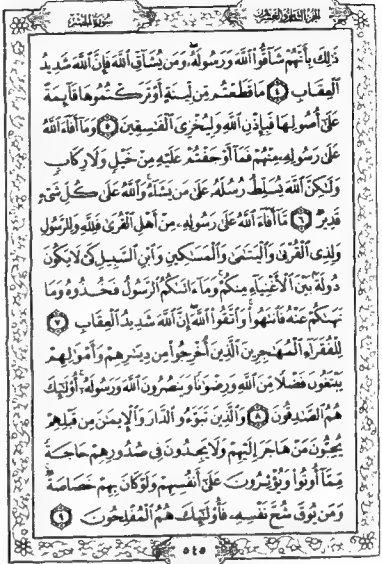 الجزء الثامن والعشرون
سورة الحشر
ذَٰلِكَ بِأَنَّهُمْ شَآقُّوا۟ ٱللَّهَ وَرَسُولَهُۥ وَمَن يُشَآقِّ ٱللَّهَ فَإِنَّ ٱللَّهَ شَدِيدُ
ٱلْعِقَابِ ٤ مَا قَطَعْتُم مِّن لِّينَةٍ أَوْ تَرَكْتُمُوهَا قَآئِمَةً
عَلَىٰٓ أُصُولِهَا فَبِإِذْنِ ٱللَّهِ وَلِيُخْزِىَ ٱلْفَـٰسِقِينَ ٥ وَمَآ أَفَآءَ ٱللَّهُ
عَلَىٰ رَسُولِهِۦ مِنْهُمْ فَمَآ أَوْجَفْتُمْ عَلَيْهِ مِنْ خَيْلٍ وَلَا رِكَابٍ
وَلَـٰكِنَّ ٱللَّهَ يُسَلِّطُ رُسُلَهُۥ عَلَىٰ مَن يَشَآءُ ۚ وَٱللَّهُ عَلَىٰ كُلِّ شَىْءٍ
قَدِيرٌ ٦ مَّآ أَفَآءَ ٱللَّهُ عَلَىٰ رَسُولِهِۦ مِنْ أَهْلِ ٱلْقُرَىٰ فَلِلَّهِ وَلِلرَّسُولِ
وَلِذِى ٱلْقُرْبَىٰ وَٱلْيَتَـٰمَىٰ وَٱلْمَسَـٰكِينِ وَٱبْنِ ٱلسَّبِيلِ كَىْ لَا يَكُونَ
دُولَةًۢ بَيْنَ ٱلْأَغْنِيَآءِ مِنكُمْ ۚ وَمَآ ءَاتَىٰكُمُ ٱلرَّسُولُ فَخُذُوهُ وَمَا
نَهَىٰكُمْ عَنْهُ فَٱنتَهُوا۟ ۚ وَٱتَّقُوا۟ ٱللَّهَ ۖ إِنَّ ٱللَّهَ شَدِيدُ ٱلْعِقَابِ ٧
لِلْفُقَرَآءِ ٱلْمُهَـٰجِرِينَ ٱلَّذِينَ أُخْرِجُوا۟ مِن دِيَـٰرِهِمْ وَأَمْوَٰلِهِمْ
يَبْتَغُونَ فَضْلًا مِّنَ ٱللَّهِ وَرِضْوَٰنًا وَيَنصُرُونَ ٱللَّهَ وَرَسُولَهُۥٓ ۚ أُو۟لَـٰٓئِكَ
هُمُ ٱلصَّـٰدِقُونَ ٨ وَٱلَّذِينَ تَبَوَّءُو ٱلدَّارَ وَٱلْإِيمَـٰنَ مِن قَبْلِهِمْ
يُحِبُّونَ مَنْ هَاجَرَ إِلَيْهِمْ وَلَا يَجِدُونَ فِى صُدُورِهِمْ حَاجَةً
مِّمَّآ أُوتُوا۟ وَيُؤْثِرُونَ عَلَىٰٓ أَنفُسِهِمْ وَلَوْ كَانَ بِهِمْ خَصَاصَةٌ ۚ
وَمَن يُوقَ شُحَّ نَفْسِهِۦ فَأُو۟لَـٰٓئِكَ هُمُ ٱلْمُفْلِحُونَ ٩
٥٤٥